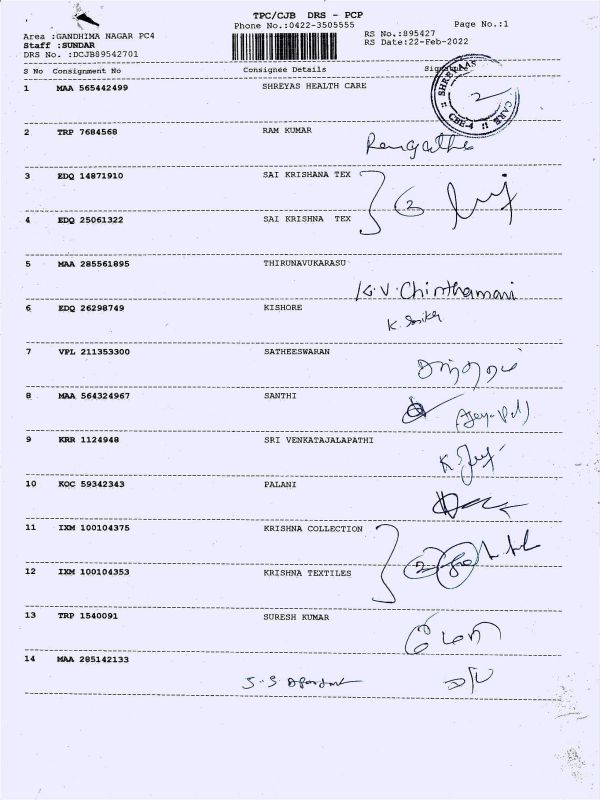 TPC/CJB DRS - PCP
Phone No.:0422-3505555 Page No.:1
Area :GANDHIMA NAGAR PC4 RS No.:895427
Staff :SUNDAR RS Date:22-Feb-2022
DRS No. :DCJB89542701
S No Consignment No Consignee Details Signature
1 MAA 565442499 SHREYAS HEALTH CARE
:: SHREYAAS CARE :: CBE-4
2
2 TRP 7684568 RAM KUMAR
3 EDQ 14871910 SAI KRISHANA TEX
2
4 EDQ 25061322 SAI KRISHNA TEX
5 MAA 285561895 THIRUNAVUKARASU
K.V.Chinthamani
6 EDQ 26298749 KISHORE
7 VPL 211353300 SATHEESWARAN
8 MAA 564324967 SANTHI
9 KRR 1124948 SRI VENKATAJALAPATHI
10 KOC 59342343 PALANI
11 IXM 100104375 KRISHNA COLLECTION
2
12 IXM 100104353 KRISHNA TEXTILES
13 TRP 1540091 SURESH KUMAR
14 MAA 285142133